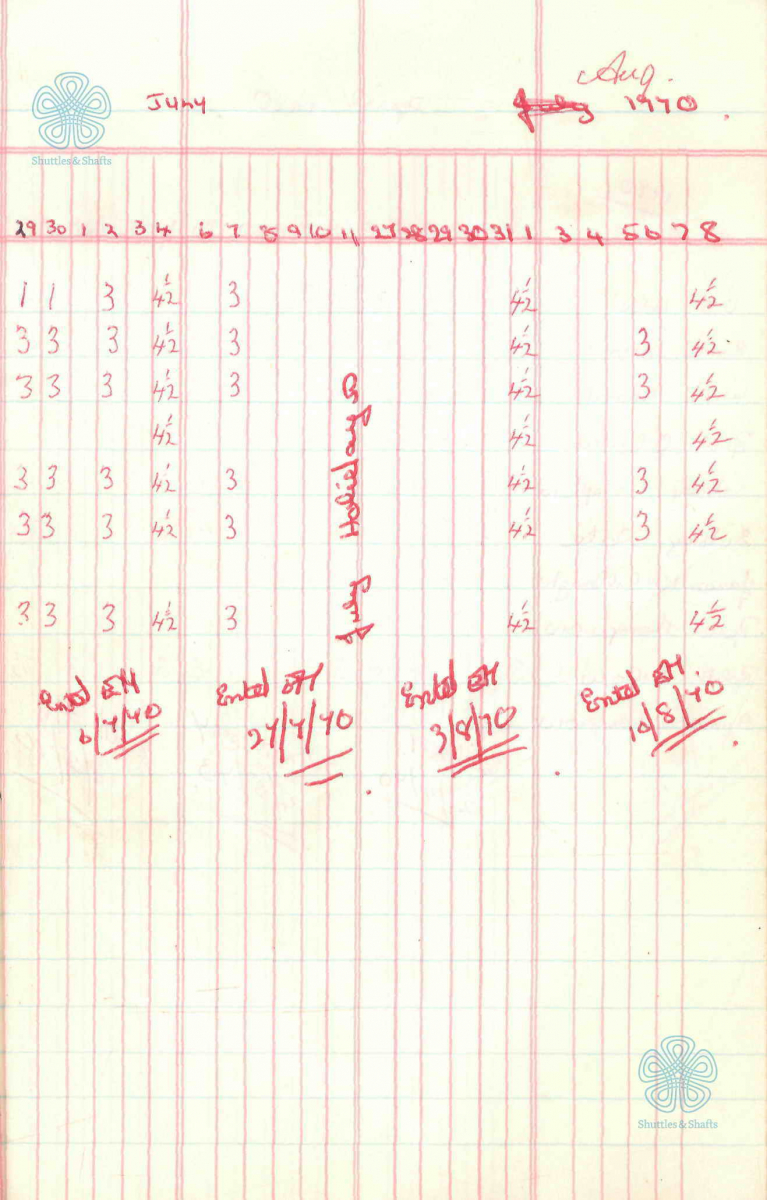 Aug.
Juny July 1970
Shuttles & Shafts
29 30 1 2 3 4 6 7 8 9 10 11 27 28 29 30 31 1 3 4 5 6 7 8
1 1 3 4½ 3 4½ 4½
3 3 3 4½ 3 4½ 3 4½
3 3 3 4½ 3 4½ 3 4½
4½ 4½ 4½
3 3 3 4½ 3 4½ 3 4½
3 3 3 4½ 3 4½ 3 4½
3 3 3 4½ 3 4½ 4½
July Holidays
Entd EH
6/7/70
Entd EH
27/7/70
Entd EH
3/8/70
Entd EH
10/8/70
Shuttles & Shafts